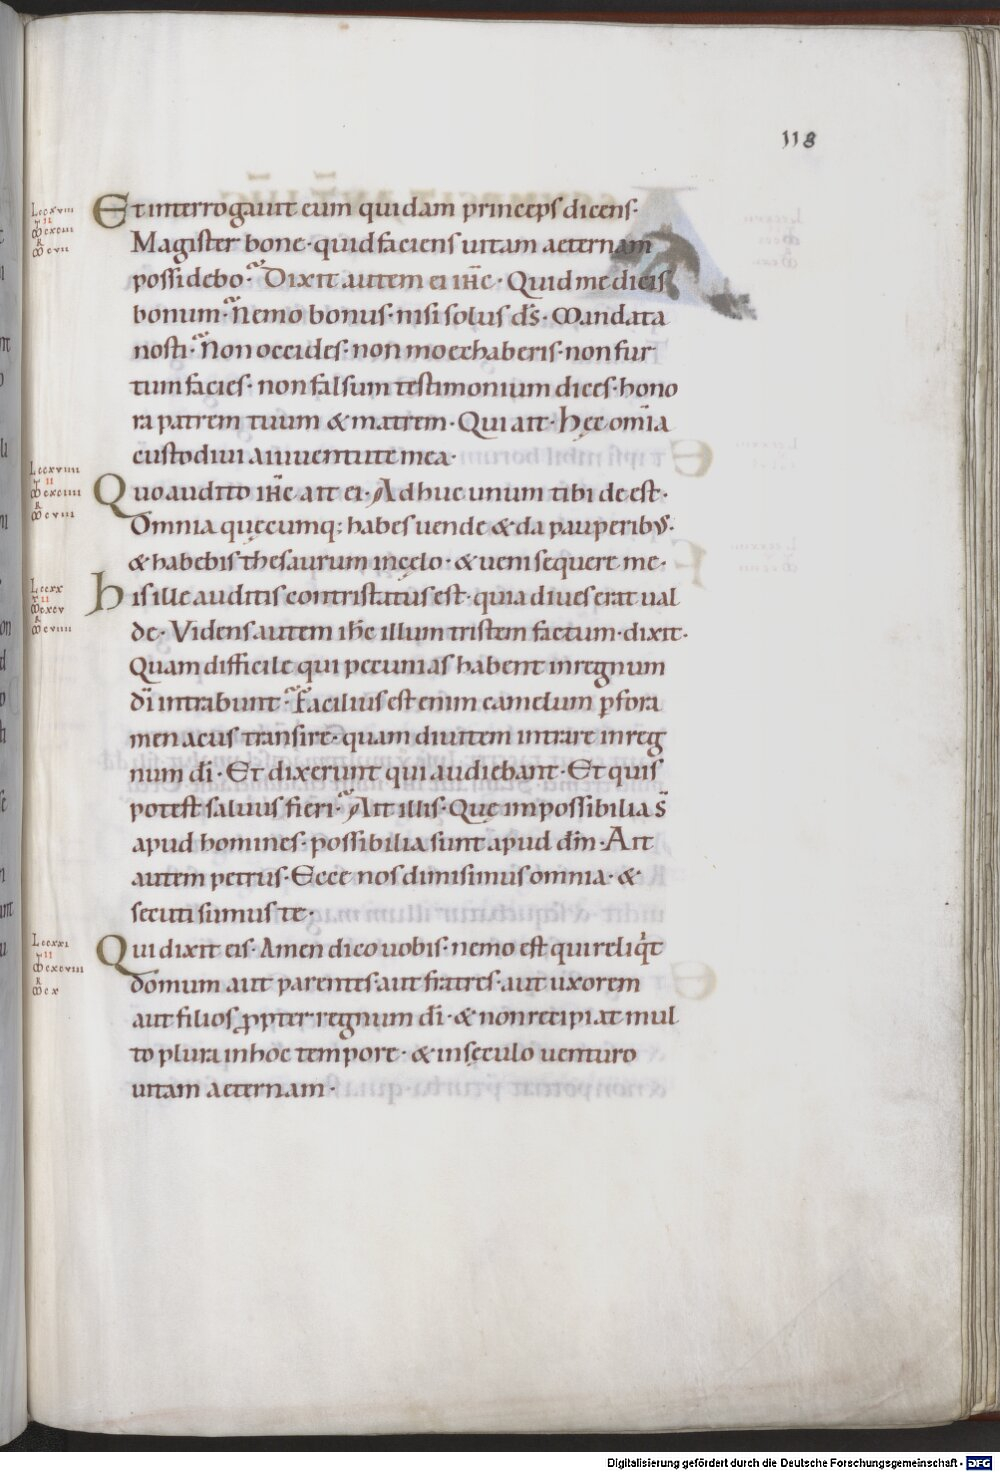 118
Et interrogauit eum quidam princeps dicens·
Magister bone· quid faciens uitam aeternam
possidebo· Dixit autem ei ihc̄· Quid me dicis
bonum· Nemo bonus· nisi solus ds̄· Mandata
nosti· Non occides· non moechaberis· non fur
tum facies· non falsum testimonium dices· hono
ra patrem tuum & matrem· Qui ait· Hęc om̄ia
custodiui a iuuentute mea·
Quo audito ihc̄ ait ei· Adhuc unum tibi deest·
Omnia quęcumq; habes uende & da pauperibus·
& habebis thesaurum in cęlo· & ueni sequere me·
His ille auditis contristatus est· quia diues erat ual
de· Videns autem ihc̄ illum tristem factum· dixit·
Quam difficile qui pecunias habent in regnum
dī intrabunt· Facilius est enim camelum ꝑ fora
men acus transire· quam diuitem intrare in reg
num dī· Et dixerunt qui audiebant· Et quis
potest saluus fieri· Ait illis· Quę impossibilia s̄
apud homines· possibilia sunt apud dm̄· Ait
autem petrus· Ecce nos dimisimus omnia· &
secuti sumus te·
Qui dixit eis· Amen dico uobis· nemo est qui reliqͥt
domum aut parentes· aut fratres· aut uxorem
aut filios ꝓpter regnum dī· & non recipiat mul
to plura in hoc tempore· & in sęculo uenturo
uitam aeternam·
Digitalisierung gefördert durch die Deutsche Forschungsgemeinschaft - DFG